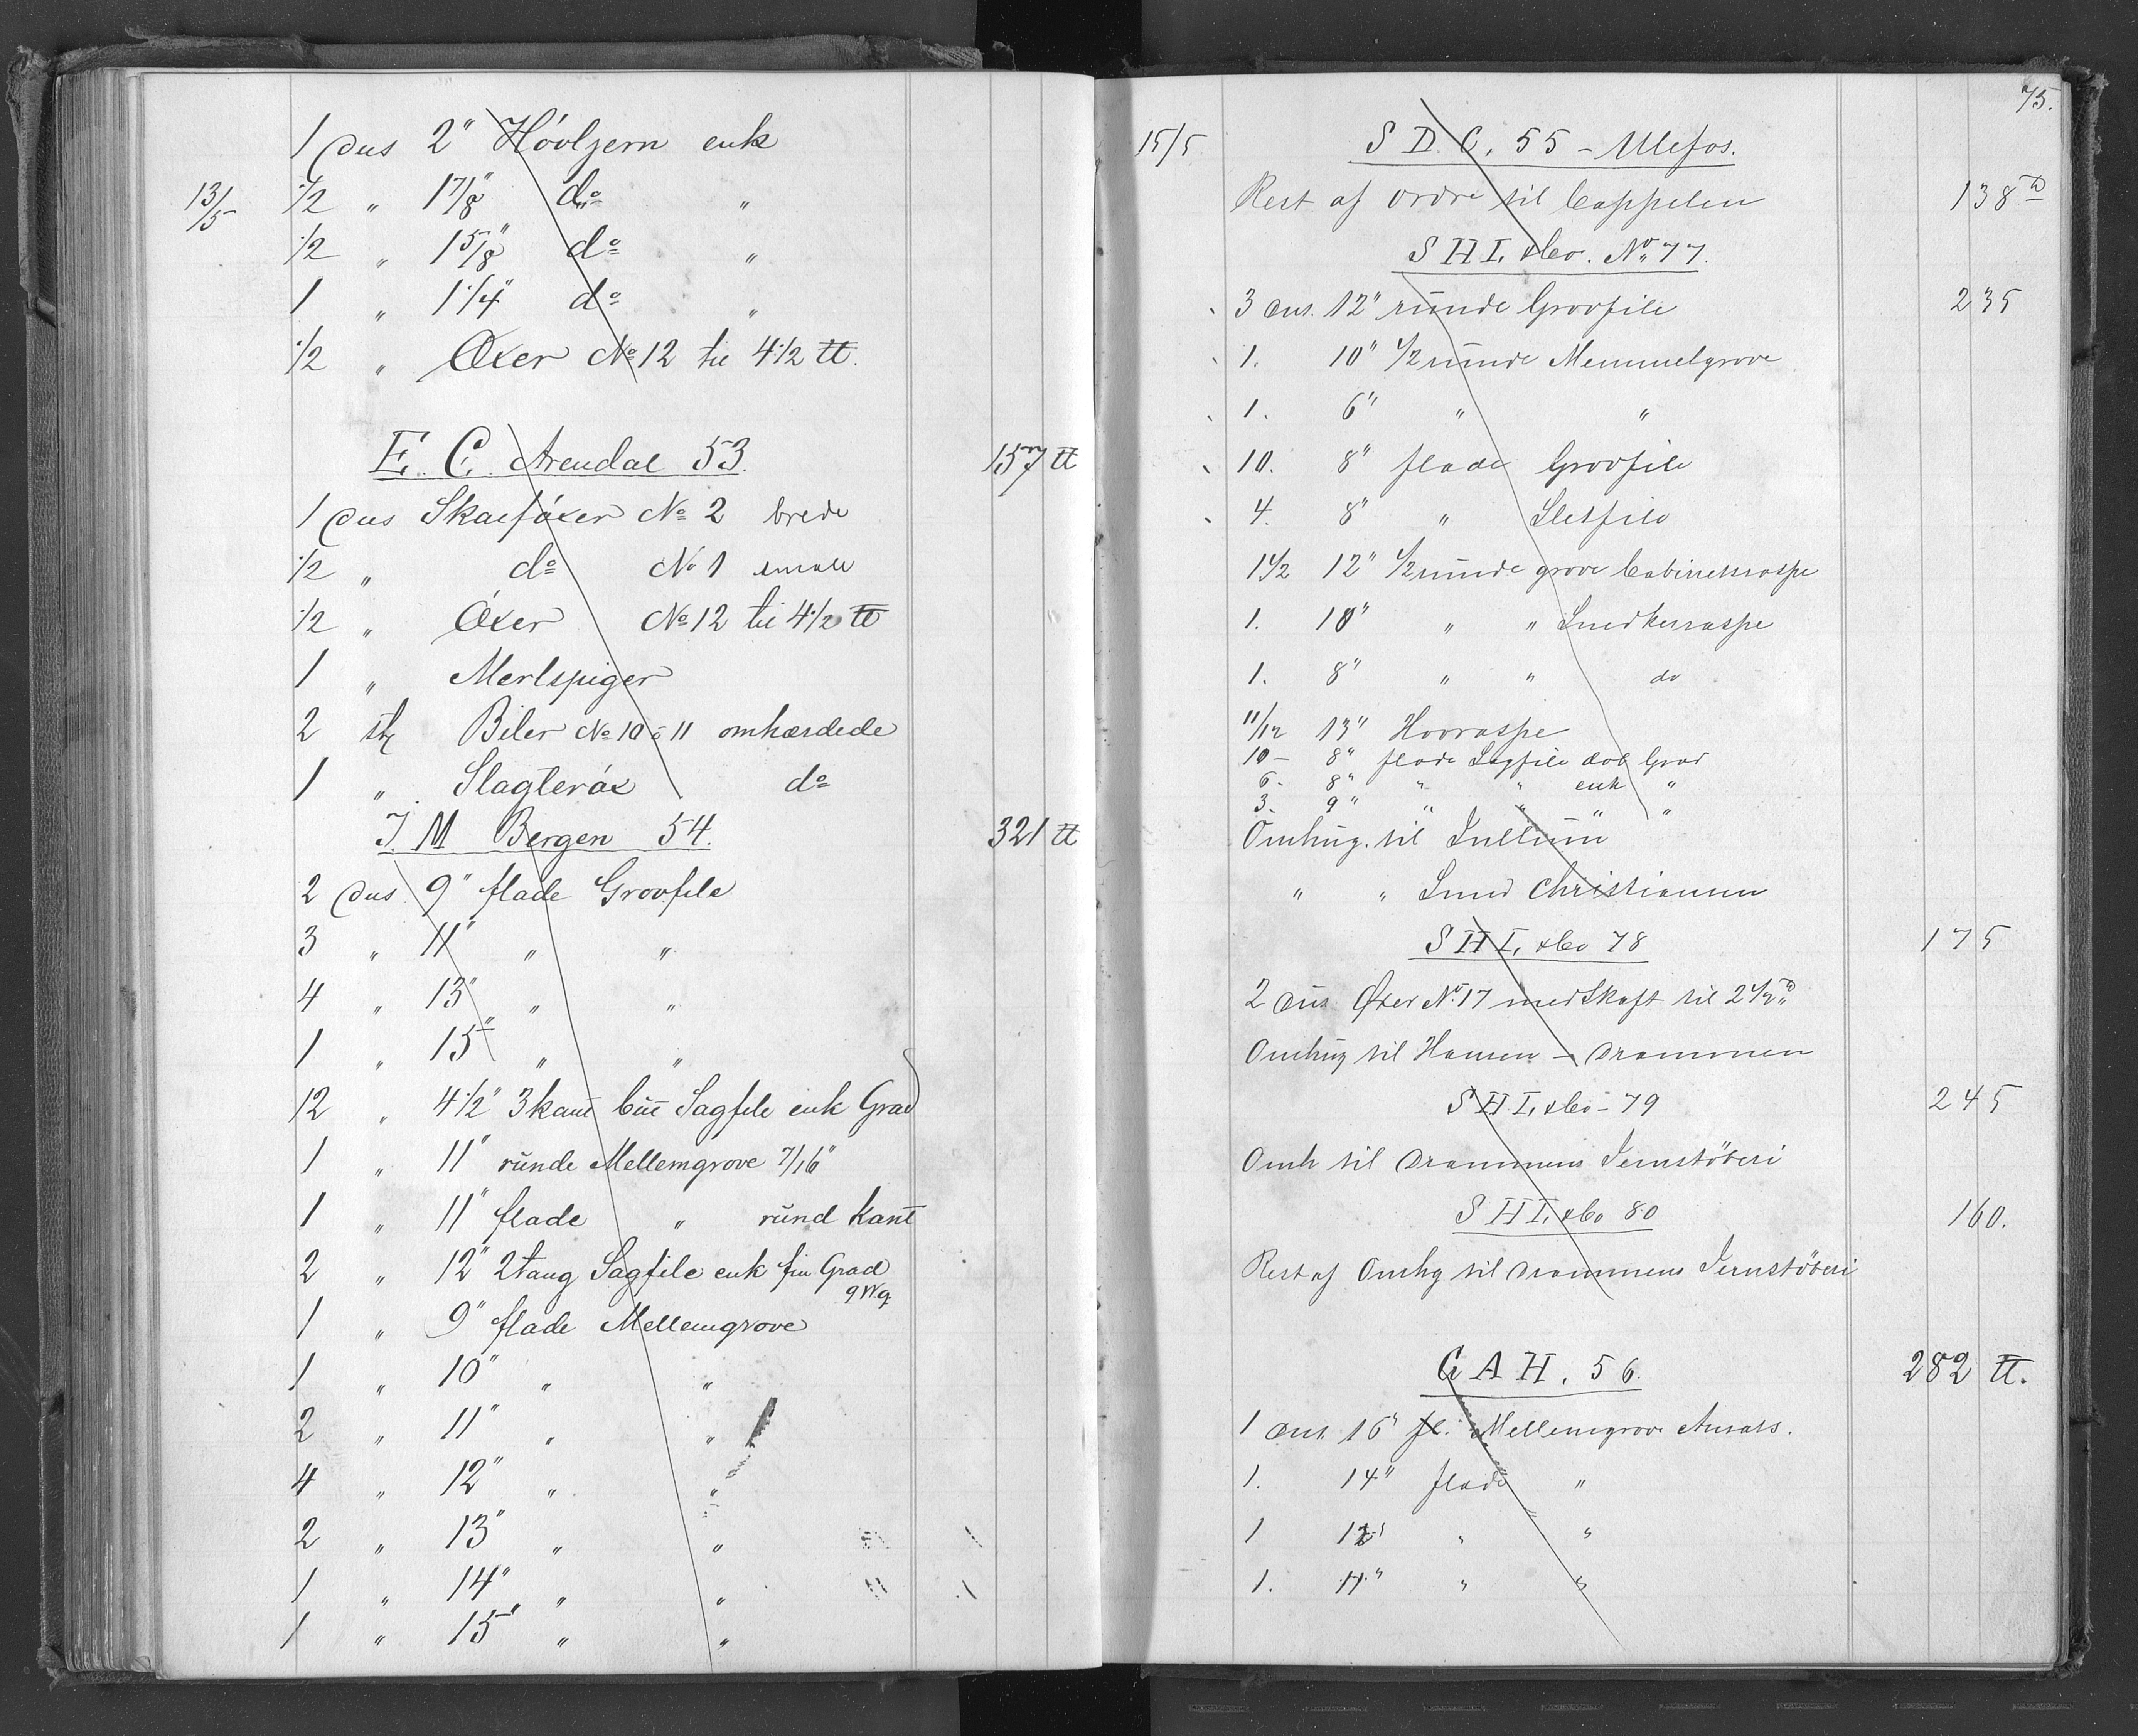 1 Dus 2" Hóvljern enk
13/5 1/2 " 1 7/8" do "
1/2 " 1 5/8" do "
1 " 1 1/4" do "
1/2 " Óxer No 12 til 4 1/2 ℔.
E. C. Arendal 53. 157 ℔
1 Dus Skaróxer No 2 brede
1/2 " do No 1 smale
1/2 " Óxer No 12 til 4 1/2 ℔
1 " Merlspiger
2 stk Biler No 10 & 11 omhærdede
1 " Slagteróx do
J. M Bergen 54. 321 ℔
2 Dus 9" flade Grovfile
3 " 11" " "
4 " 13" " "
1 " 15" " "
12 " 4 1/2" 3kant Sagfile enk Grad
1 " 11" runde Mellemgrove 7/16"
1 " 11" flade " rund Kant
2 " 12" 2tang Sagfile enk fin Grad
9 W.g.
1 " 9" flade Mellemgrove
1 " 10" " "
2 " 11" " "
4 " 12" " "
2 " 13" " "
1 " 14" " "
1 " 15" " "
75.
15/5 S D. C. 55 - Ulefos.
Rest af Ordre til Cappelen 138 ℔
S H I. & Co. No 77.
3 Dus. 12" runde Grovfile 235
1. 10" 1/2 runde Memmelgrove
1. 6" " "
10. 8" flade Grovfile
4. 8" " Sletfile
1 1/2 12" 1/2 runde grove Cabinetsraspe
1. 10" " " Snedkerraspe
1. 8" " " do
11/12 13" Hovraspe
10 - 8" flade Sagfile dob Grad
6 - 8" " " enk "
3. 9" " " " "
Omhug. til
" " Smed Christiansen
S H I. & Co 78 175
2 Dus Øxer No 17 med Skaft til 2 1/2 ℔
Omhug til Hansen - Drammen
S H I. & Co - 79 245
Omh til Drammens Jernstöberi
S H I. & Co 80 160.
Rest af Omhg til Drammens Jernstöberi
G A H. 56. 282 ℔.
1 Dus. 16" fl. Mellemgrove Ansats.
1. 14" flade "
1 12" " "
1. 11" " "